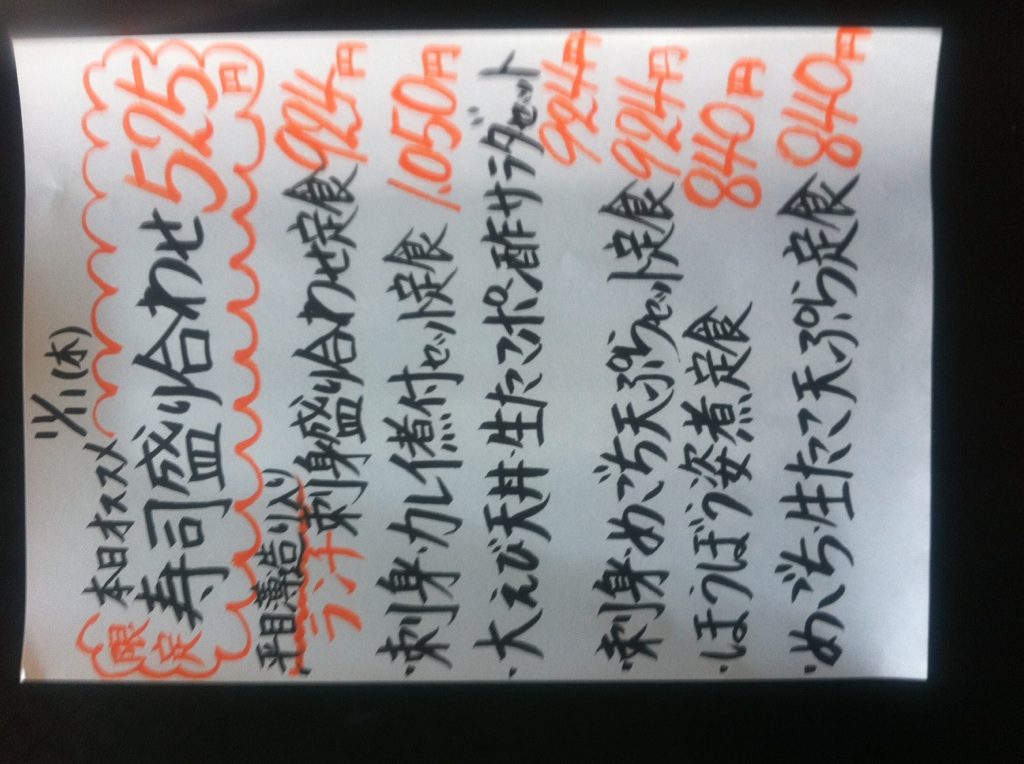 11/11(木)
本日オススメ
限定
寿司盛り合わせ 525円
平目薄造り入り
ランチ刺身盛り合わせ定食 924円
・刺身・カレイ煮付セット定食 1,050円
・大えび天丼・生たこポン酢サラダセット 924円
・刺身・めごち天ぷらセット定食 924円
・ほうぼう姿煮定食 840円
・めごち・生たこ天ぷら定食 840円